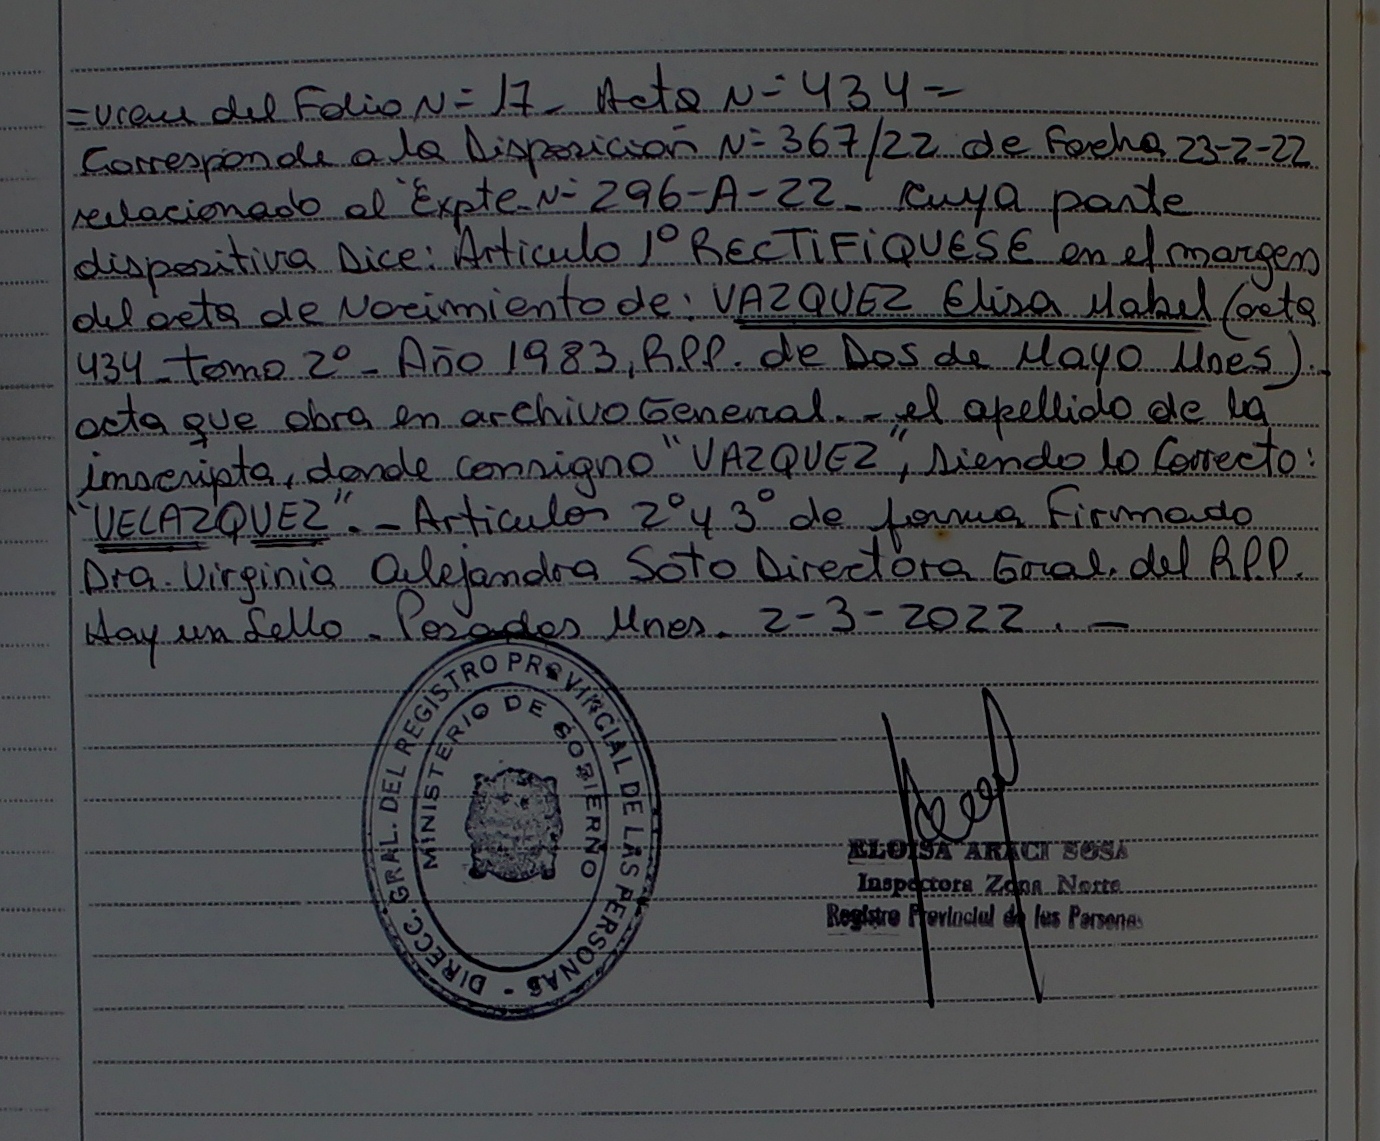 =viene del Folio N= 17- Acta N= 434-
Corresponde a la Disposición N= 367/22 de Fecha 23-2-22
relacionado al Expte. N= 296-A-22- cuya parte
dispositiva Dice: Articulo 1º RECTIFIQUESE en el margen
del acta de Nacimiento de: VAZQUEZ Elisa Mabel (acta
434-tomo 2º- Año 1983, R.P.P. de Dos de Mayo Mnes).-
acta que obra en archivo General.- el apellido de la
inscripta, donde consigno "VAZQUEZ", siendo lo Correcto:
"VELAZQUEZ".- Articulos 2º y 3º de forma Firmado
Dra. Virginia Alejandra Soto Directora Gral. del R.P.P.
Hay un Sello - Posadas Mnes. 2-3-2022.-
DIRECC. GRAL. DEL REGISTRO PROVINCIAL DE LAS PERSONAS -
MINISTERIO DE GOBIERNO
ELOISA ARACI SOSA
Inspectora Zona Norte
Registro Provincial de las Personas